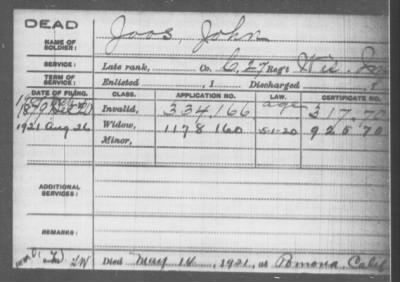 DEAD
NAME OF SOLDIER: Joos, John
SERVICE: Late rank, Co. C, 27 Reg't Wis. Inf
TERM OF SERVICE: Enlisted , 1 Discharged , 1
DATE OF FILING. CLASS. APPLICATION NO. LAW. CERTIFICATE NO.
Invalid, 334,166
1921 Aug 26 Widow, 1178 160 5-1-20
Minor,
ADDITIONAL SERVICES:
REMARKS:
Died May 14, 1921, at Pomona, Calif